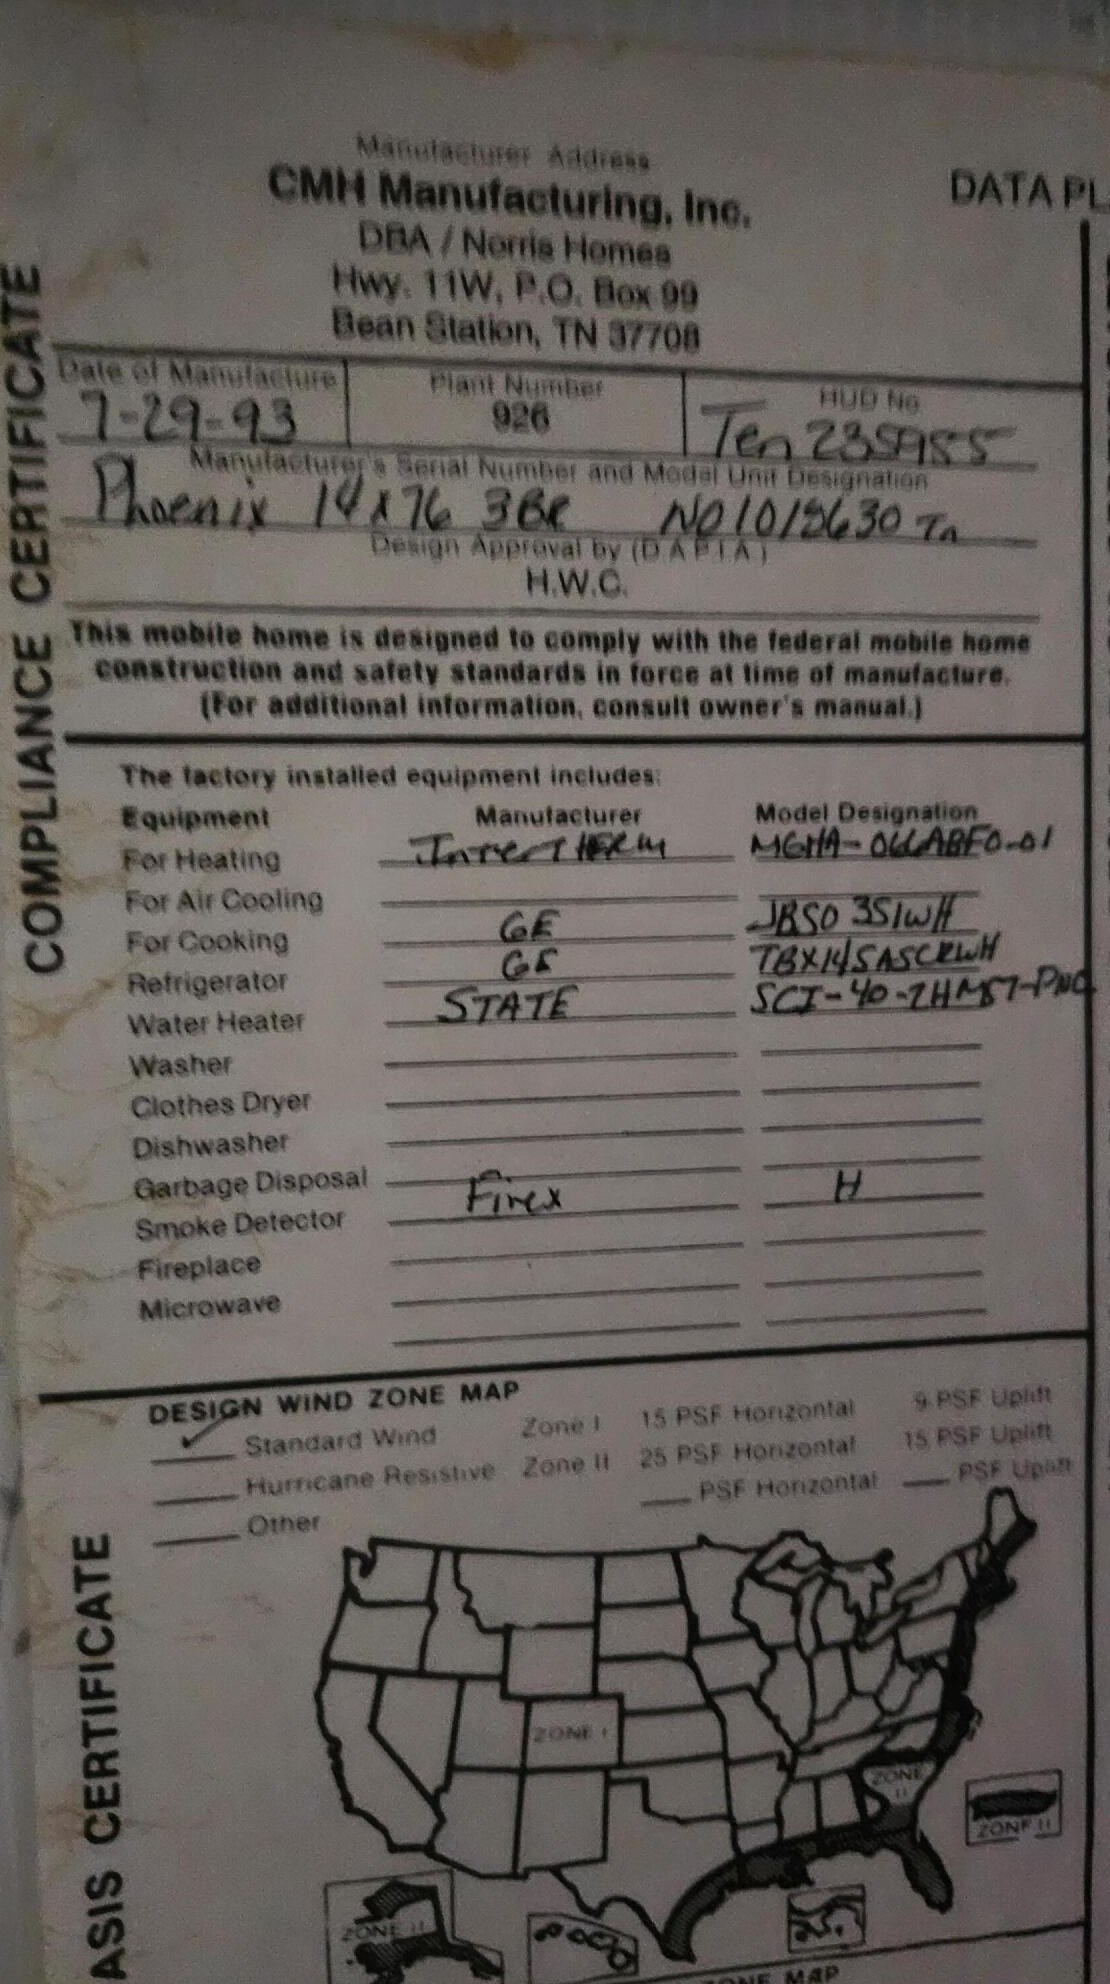 Manufacturer Address
CMH Manufacturing, Inc.
DATA PL
DBA / Norris Homes
Hwy. 11W, P.O. Box 99
Bean Station, TN 37708
COMPLIANCE CERTIFICATE
Date of Manufacture Plant Number HUD No
7-29-93 926 Ten 235955
Manufacturer's Serial Number and Model Unit Designation
Phoenix 14x76 3BR NO1015630 Tn
Design Approval by (D.A.P.I.A.)
H.W.C.
This mobile home is designed to comply with the federal mobile home
construction and safety standards in force at time of manufacture.
(For additional information, consult owner's manual.)
The factory installed equipment includes:
Equipment Manufacturer Model Designation
For Heating InterTHERM MGHA-066ABF0-01
For Air Cooling
For Cooking GE JBSO 351WH
Refrigerator GE TBX14SASCRWH
Water Heater STATE
Washer
Clothes Dryer
Dishwasher
Garbage Disposal
Smoke Detector Firex H
Fireplace
Microwave
DESIGN WIND ZONE MAP
Standard Wind Zone I 15 PSF Horizontal 9 PSF Uplift
Hurricane Resistive Zone II 25 PSF Horizontal 15 PSF Uplift
Other PSF Horizontal PSF Uplift
ZONE I
ZONE II
ZONE II
ZONE II
ASIS CERTIFICATE
ZONE MAP